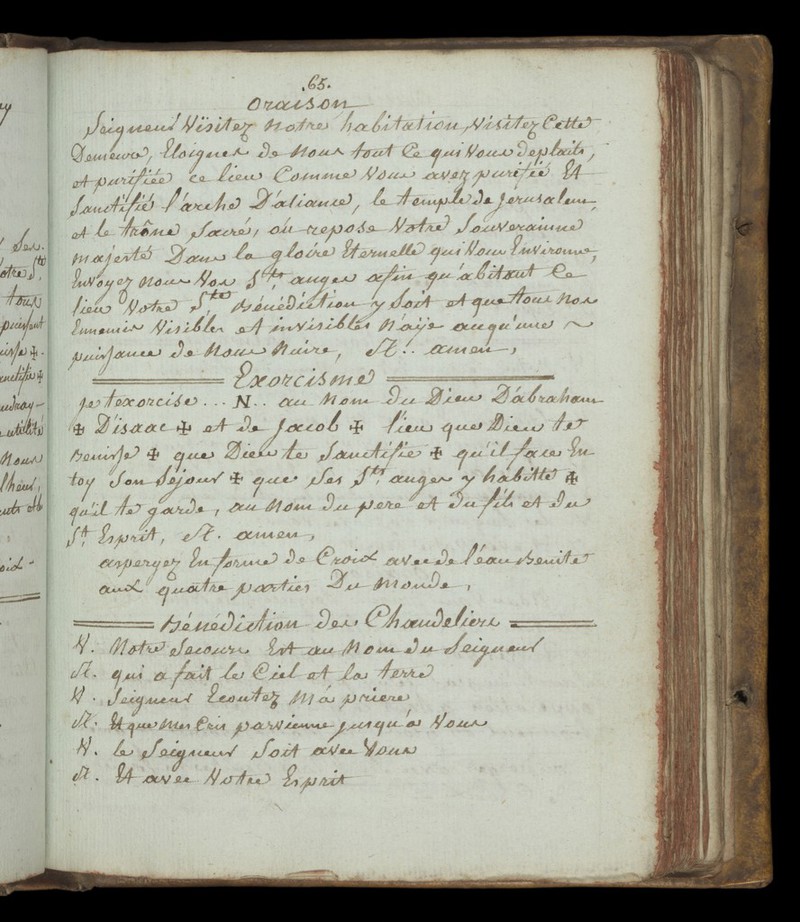 .65.
Oraison
Seigneur Visitez notre habitation, Visitez Cette
Demeure, Eloignes de Nous tout Ce qui Vous deplaits,
et purifiée ce lieu Comme Vous avez purifié Et
Sanctifié l'arche D'aliance, le temple de Jerusalem,
et le trône Sacré, où repose Votre Souverainne
majesté Dans la gloire Eternelle qui Vous Environne,
Envoyez nous Vos Sts anges afin qu'abitant Ce
lieu Votre Ste Bénédiction y Soit et que tous nos
Ennemis Visibles et invisibles N'aÿe auqu'une ~
puissance de Nous Nuire, R:. amen,
Exorcisme
je texorcise ... N.. au Nom du Dieu D'abraham
✠ D'isaac ✠ et de Jacob ✠ lieu que Dieu te
Benisse ✠ que Dieu te Sanctifie ✠ qu'il face En
toy Son Séjour ✠ que Ses Sts anges y habitte ✠
qu'il te garde, au Nom du pere et du fils et du
St Esprit, R. amen,
aspergez En forme de Croix avec de l'éau Benite
aux quatre parties Du Monde,
Bénédiction des Chandeliers
V. Notre Secours Est au Nom du Seigneur
R. qui a fait le Ciel et la terre
V. Seigneur Ecoutez Ma priere
R. Et que Mes Cris parvienne jusqu'a Vous
V. le Seigneur Soit avec Vous
R. Et avec Votre Esprit